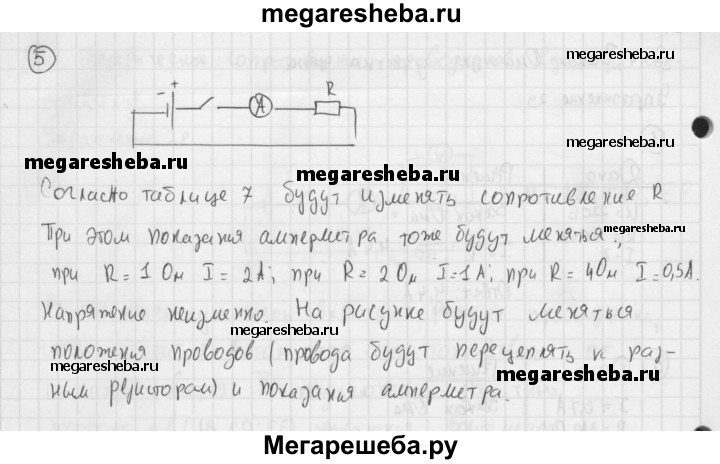 megaresheba.ru
5
megaresheba.ru
- +
A
R
megaresheba.ru
megaresheba.ru
megaresheba.ru
Согласно таблице 7 будут изменять сопротивление R
При этом показания амперметра тоже будут меняться:
megaresheba.ru
megaresheba.ru
при R=1 Ом I=2А; при R=2 Ом I=1А; при R=4Ом I=0,5А.
Напряжение неизменно. На рисунке будут меняться
megaresheba.ru
megaresheba.ru
положения проводов (провода будут перецеплять к раз-
megaresheba.ru
ным резисторам) и показания амперметра.
megaresheba.ru
Мегарешеба.ру